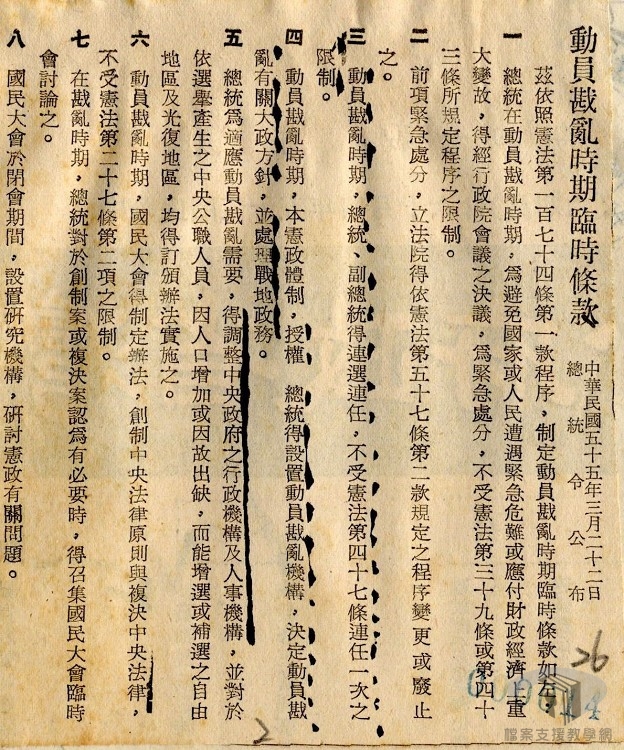 動員戡亂時期臨時條款
中華民國五十五年三月二十二日
總統令公布
茲依照憲法第一百七十四條第一款程序，制定動員戡亂時期臨時條款如左：
一　總統在動員戡亂時期，為避免國家或人民遭遇緊急危難或應付財政經濟上重
大變故，得經行政院會議之決議，為緊急處分，不受憲法第三十九條或第四十
三條所規定程序之限制。
二　前項緊急處分，立法院得依憲法第五十七條第二款規定之程序變更或廢止
之。
三　動員戡亂時期，總統、副總統得連選連任，不受憲法第四十七條連任一次之
限制。
四　動員戡亂時期，本憲政體制，授權　總統得設置動員戡亂機構，決定動員戡
亂有關大政方針，並處理戰地政務。
五　總統為適應動員戡亂需要，得調整中央政府之行政機構及人事機構，並對於
依選舉產生之中央公職人員，因人口增加或因故出缺，而能增選或補選之自由
地區及光復地區，均得訂頒辦法實施之。
六　動員戡亂時期，國民大會得制定辦法，創制中央法律原則與複決中央法律，
不受憲法第二十七條第二項之限制。
七　在戡亂時期，總統對於創制案或複決案認為有必要時，得召集國民大會臨時
會討論之。
八　國民大會於閉會期間，設置研究機構，研討憲政有關問題。
26
2
檔案支援教學網